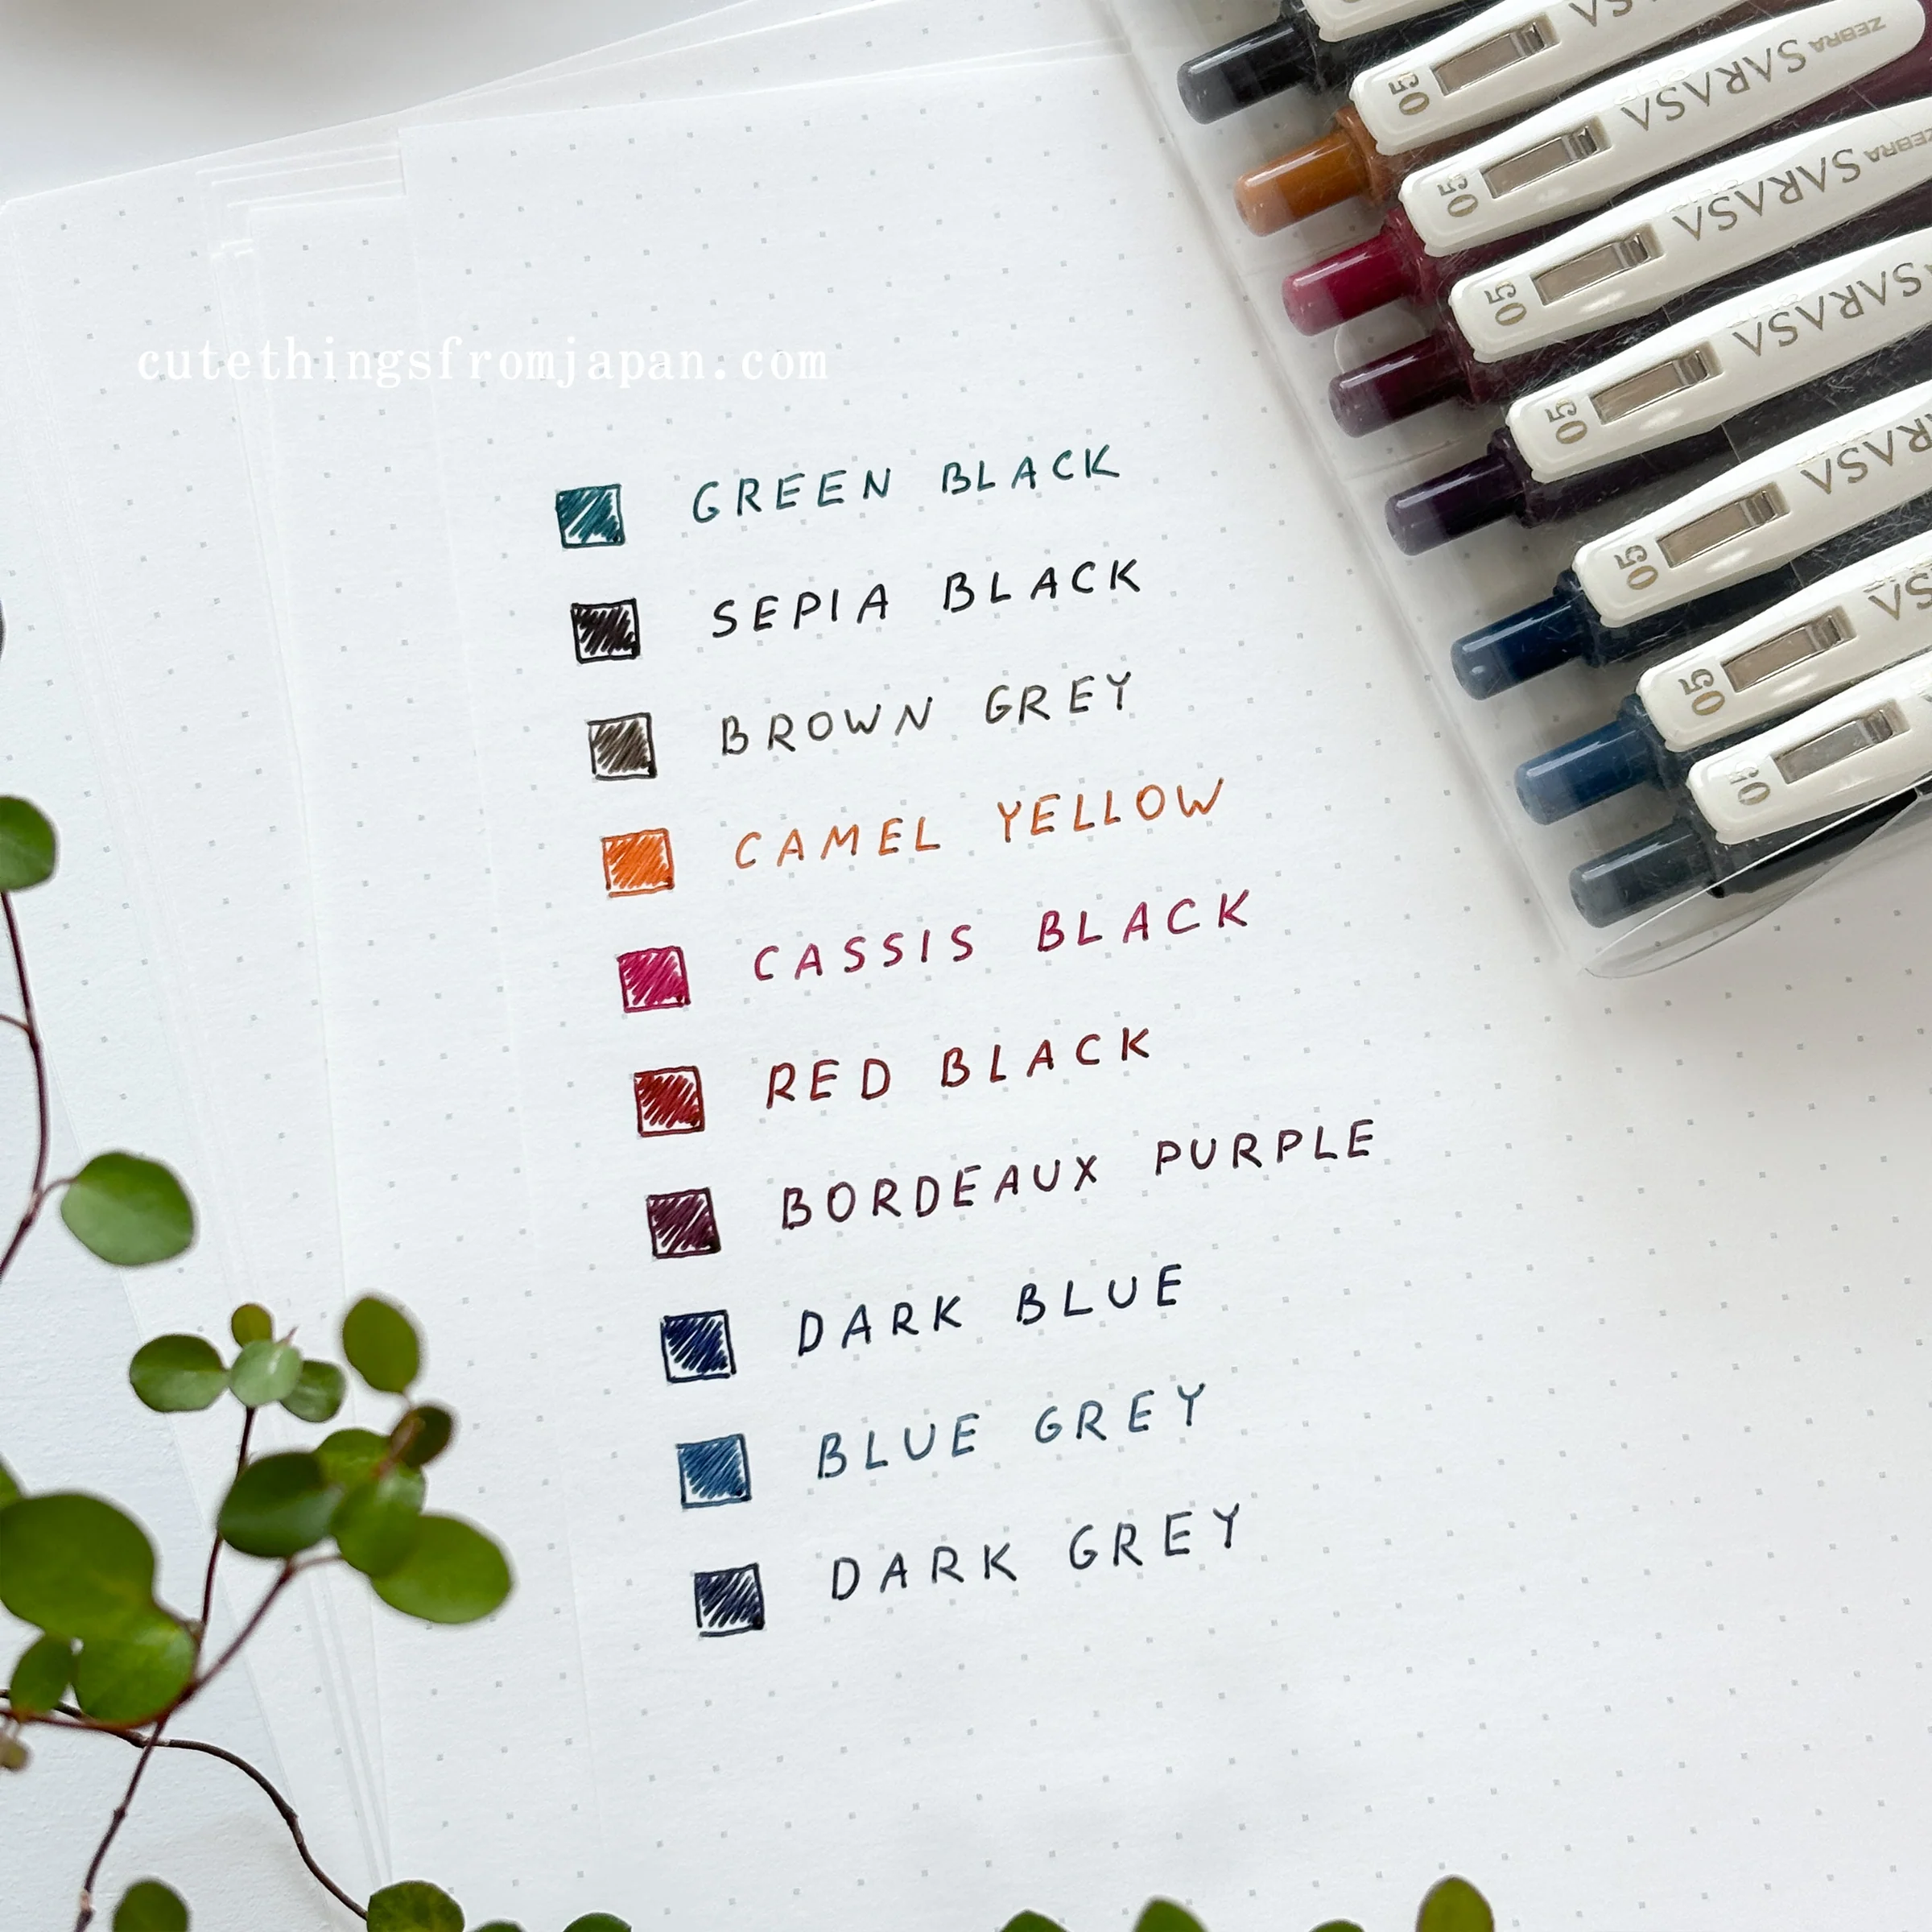 cutethingsfromjapan.com
GREEN BLACK
SEPIA BLACK
BROWN GREY
CAMEL YELLOW
CASSIS BLACK
RED BLACK
BORDEAUX PURPLE
DARK BLUE
BLUE GREY
DARK GREY
05
05 SARASA ZEBRA
05 SARASA ZEBRA
05 SARASA
05
05
05